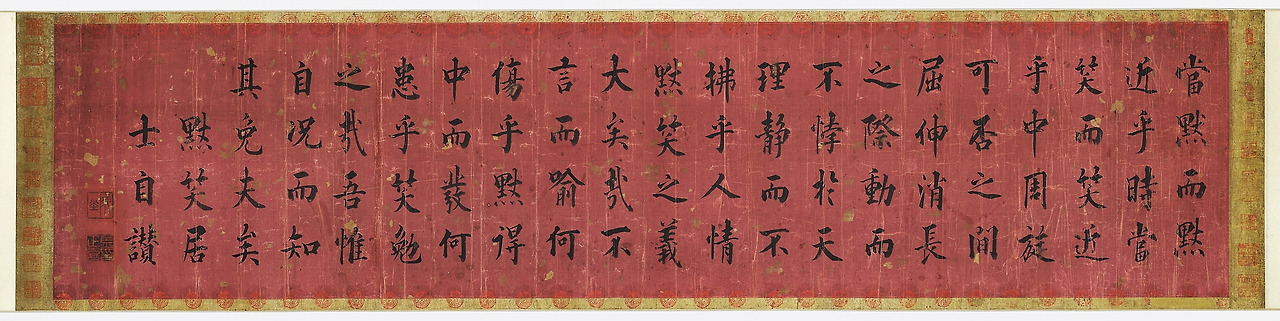 當默而默
近乎時當
笑而笑近
乎中周旋
可否之間
屈伸消長
之際動而
不悖於天
理静而不
拂乎人情
默笑之義
大矣哉不
言而喻何
傷乎默得
中而發何
患乎笑勉
之哉吾惟
自况而知
其免夫矣
默笑居
士自讃